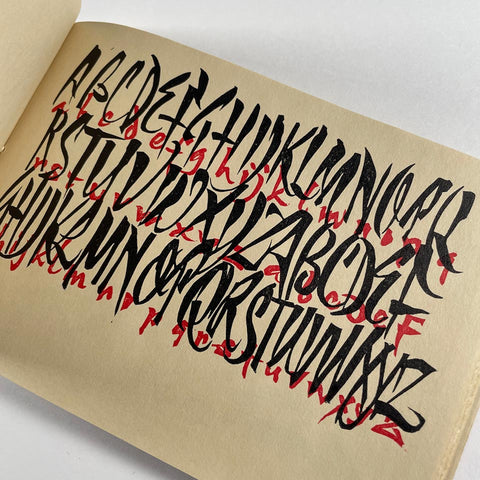 ABCDEFGHIJKLMNOPQ
abcdefghijklmnopq
RSTUVWXYZABCDEF
rstuvwxyzabcdef
GHIJKLMNOPQRSTUVWXYZ
ghijklmnopqrstuvwxyz